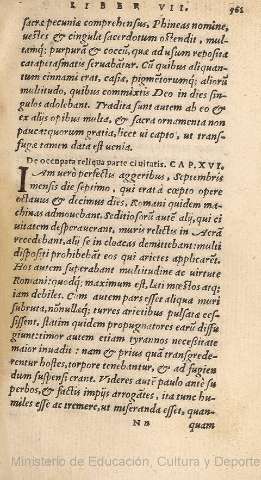 LIBER VII. 961
sacræ pecuniæ comprehensus, Phineas nomine,
vestes & cingula sacerdotum ostendit, mul-
tamq; purpurã & coccũ, quæ ad usum reposita
catapetasmatis servabãtur. Cũ quibus aliquan-
tum cinnami erat, casiæ, pigmẽtorumq; aliorũ
multitudo, quibus commixtis Deo in dies sin-
gulos adolebant. Tradita sunt autem ab eo &
ex aliis opibus multa, & sacra ornamenta non
pauca: quorum gratia, licet vi capto, ut trans-
fugæ tamen data est venia.
De occupata reliqua parte civitatis. CAP. XVI.
IAm verò perfectis aggeribus, Septembris
mensis die septimo, qui erat à cœpto opere
octavus & decimus dies, Romani quidem ma-
chinas admovebant. Seditiosorũ autẽ alij, qui ci
vitatem desperaverant, muris relictis in Acrã
recedebant, alij se in cloacas demittebant: multi
dispositi prohibebãt eos qui arietes applicarẽt.
Hos autem superabant multitudine ac virtute
Romani: quodq; maximum est, læti mœstos atq;
iam debiles. Cùm autem pars esset aliqua muri
subruta, nõnullæq; turres arietibus pulsatæ ces-
sissent, statim quidem propugnatores earũ diffu
giunt: timor autem etiam tyrannos necessitate
maior invadit: nam & prius quã transgrede-
rentur hostes, torpore tenebantur, & ad fugien
dum suspensi erant. Videres autẽ paulo antè su-
perbos, & factis impiis arrogãtes, ita tunc hu-
miles esse ac tremere, ut miseranda esset, quan-
Nn quam
Ministerio de Educación, Cultura y Deporte